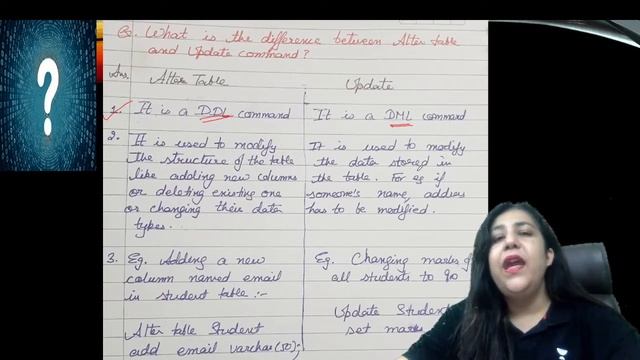 Q. What is the difference between Alter table
and Update command?
Ans. Alter Table
Update
1. It is a DDL command
It is a DML command
2. It is used to modify
the structure of the table
like adding new columns
or deleting existing one
or changing their data
types.
It is used to modify
the data stored in
the table. For eg if
someone's name, address
has to be modified.
3. Eg. Adding a new
column named email
in student table :-
Eg. Changing marks of
all students to 90
Alter table Student
add email varchar(50);
Update Student
set marks